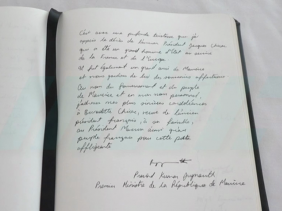 C'est avec une profonde tristesse que j'ai
appris le décès de l'ancien Président Jacques Chirac
qui a été un grand homme d'Etat au service
de la France et de l'Europe
Il fut également un grand ami de Maurice
et nous gardons de lui des souvenirs affectueux
Au nom du gouvernement et du peuple
de Maurice et en mon nom personnel,
j'adresse mes plus sincères condoléances
à Bernadette Chirac, veuve de l'ancien
président français, à sa famille,
au Président Macron ainsi qu'au
peuple français pour cette perte
affligeante
Pravind Kumar Jugnauth
Premier Ministre de la République de Maurice